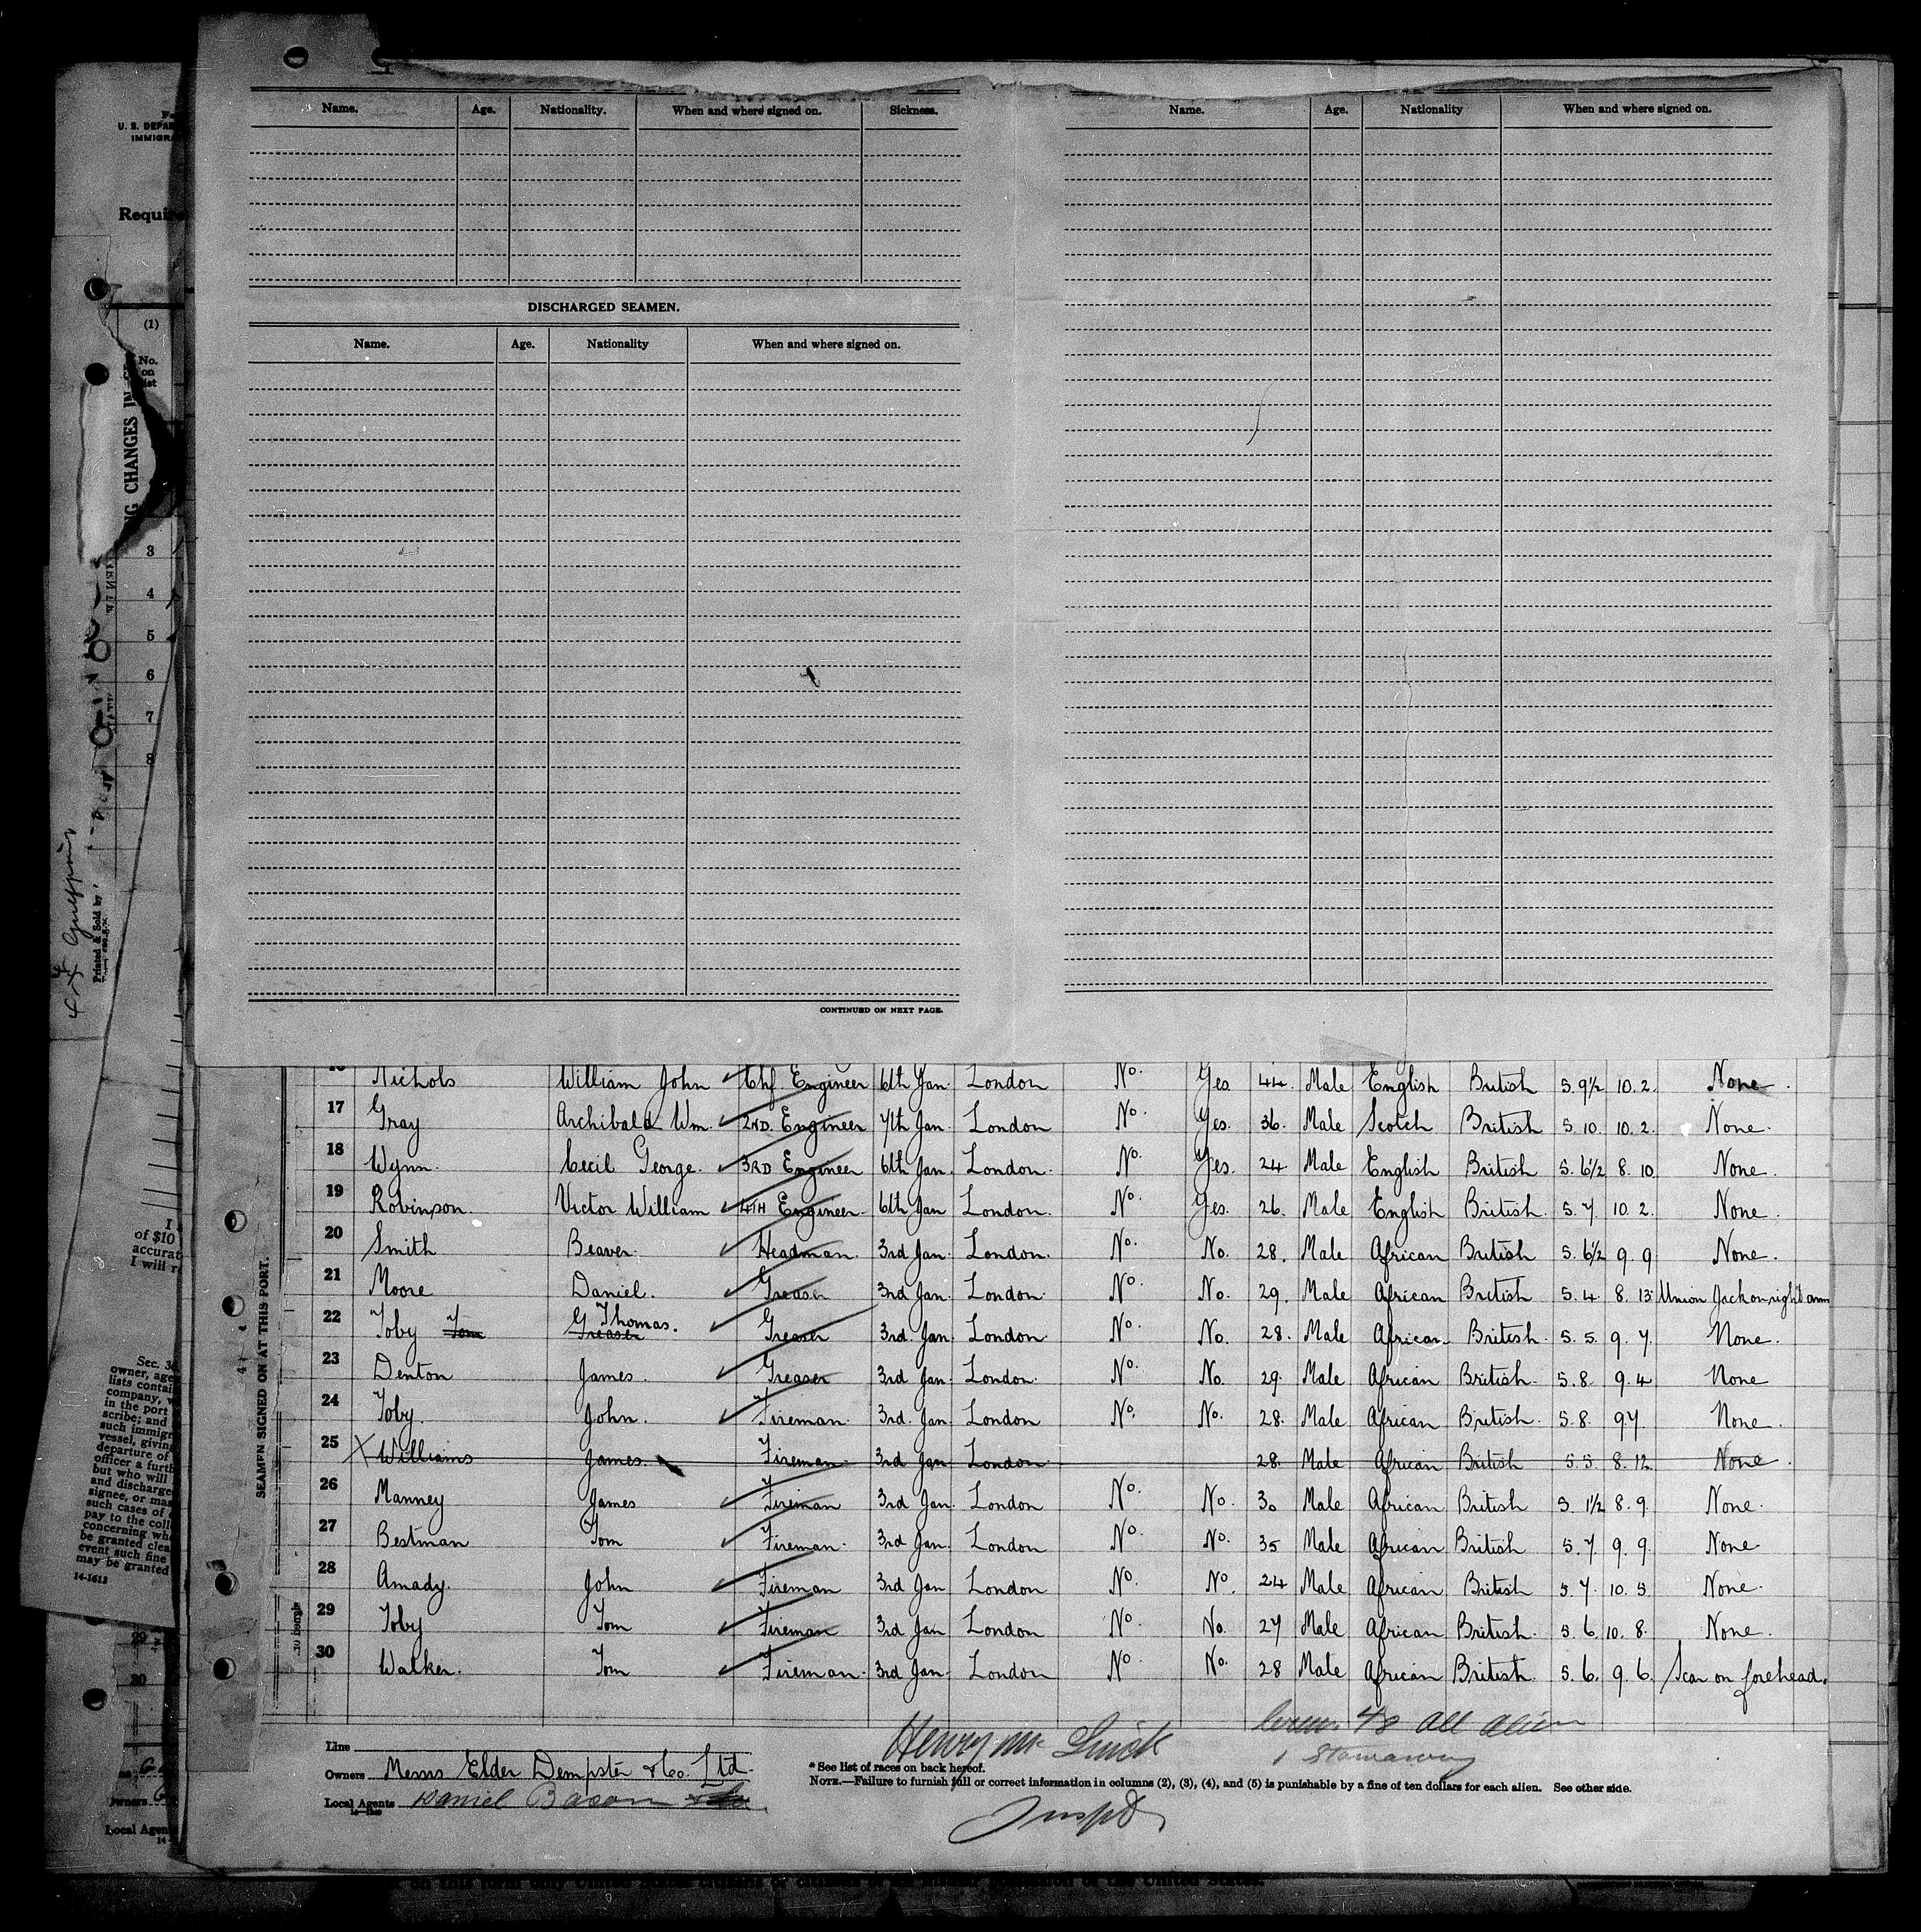 Name. Age. Nationality. When and where signed on. Sickness.
Name. Age. Nationality When and where signed on.
DISCHARGED SEAMEN.
Name. Age. Nationality When and where signed on.
CONTINUED ON NEXT PAGE.
U. S. DEPAR
IMMIGRA
Requir
(1)
No.
on
list
NG CHANGES IN
3
4
5
6
7
8
Printed & Sold by
of $10
accurat
I will r
Sec. 36
owner, age
lists contai
company,
in the port
scribe; and
such immigr
vessel, giving
departure of
officer a furth
but who will
and discharge
signee, or mas
such cases of
pay to the coll
concerning wh
be granted clea
event such fine
may be granted
14-1613
SEAMEN SIGNED ON AT THIS PORT.
Nichols William John Chf. Engineer 6th Jan. London No. Yes 44. Male English British 5. 9½ 10. 2. None.
17 Gray Archibald Wm. 2ND. Engineer 7th Jan. London No. Yes. 36. Male Scotch British 5 10. 10. 2. None.
18 Wynn. Cecil George. 3RD Engineer 6th Jan. London. No. Yes. 24. Male English British 5. 6½ 8. 10. None.
19 Robinson. Victor William 4TH Engineer. 6th Jan London. No. Yes. 26. Male English British. 5. 7. 10. 2. None.
20 Smith Beaver. Headman. 3rd Jan. London. No. No. 28. Male African British 5. 6½ 9. 9 None.
21 Moore Daniel. Greaser 3rd Jan. London. No. No. 29. Male African British 5. 4. 8. 13. Union Jack on right arm
22 Toby Tom Greaser Thomas. Greaser 3rd. Jan. London. No. No. 28. Male African British. 5. 5. 9. 7. None.
23 Denton James. Greaser 3rd Jan. London. No. No. 29. Male African British. 5. 8. 9. 4 None
24 Toby. John. Fireman. 3rd. Jan. London No. No. 28. Male African British. 5. 8. 9.7 None.
25 X Williams James. Fireman. 3rd Jan London 28. Male African British 5. 5. 8. 12. None.
26 Manney James Fireman 3rd Jan. London No. No. 30 Male African British 5. 1½ 8. 9. None.
27 Bestman Tom Fireman. 3rd Jan. London No. No. 35 Male African British 5. 7. 9. 9. None.
28 Amady. John Fireman 3rd Jan London No. No. 24 Male African British 5. 7. 10. 5 None.
29 Toby Tom Fireman 3rd Jan London No. No. 27 Male African British. 5. 6. 10. 8. None.
30 Walker. Tom Fireman. 3rd Jan. London No. No. 28 Male African British. 5. 6. 9. 6. Scar on forehead.
48 all alien
1 Stowaway
Line
* See list of races on back hereof.
Owners Messrs Elder Dempster & Co. Ltd.
NOTE.—Failure to furnish full or correct information in columns (2), (3), (4), and (5) is punishable by a fine of ten dollars for each alien. See other side.
Local Agents Daniel Bacon